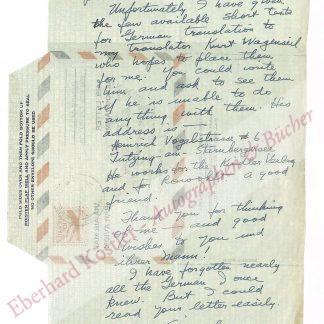 Unfortunately I have given
the few available short texts
for German translation to
my translator Kurt Wagenseil
who hopes to place them
for me. You could write
him and ask to see them
if he is unable to do
anything with them. His
address is —
Heinrich Vogelstrasse # 6
Tutzing-am-Starnbergersee
He works for the Kindler Verlag
and for Rowohlt. a good
friend.
Thank you for thinking
of me and good
wishes to you und
ihrer Mann!
I have forgotten nearly
all the German I once
knew. But I could
read your letter easily.
Eberhard Köstler Autographen & Bücher